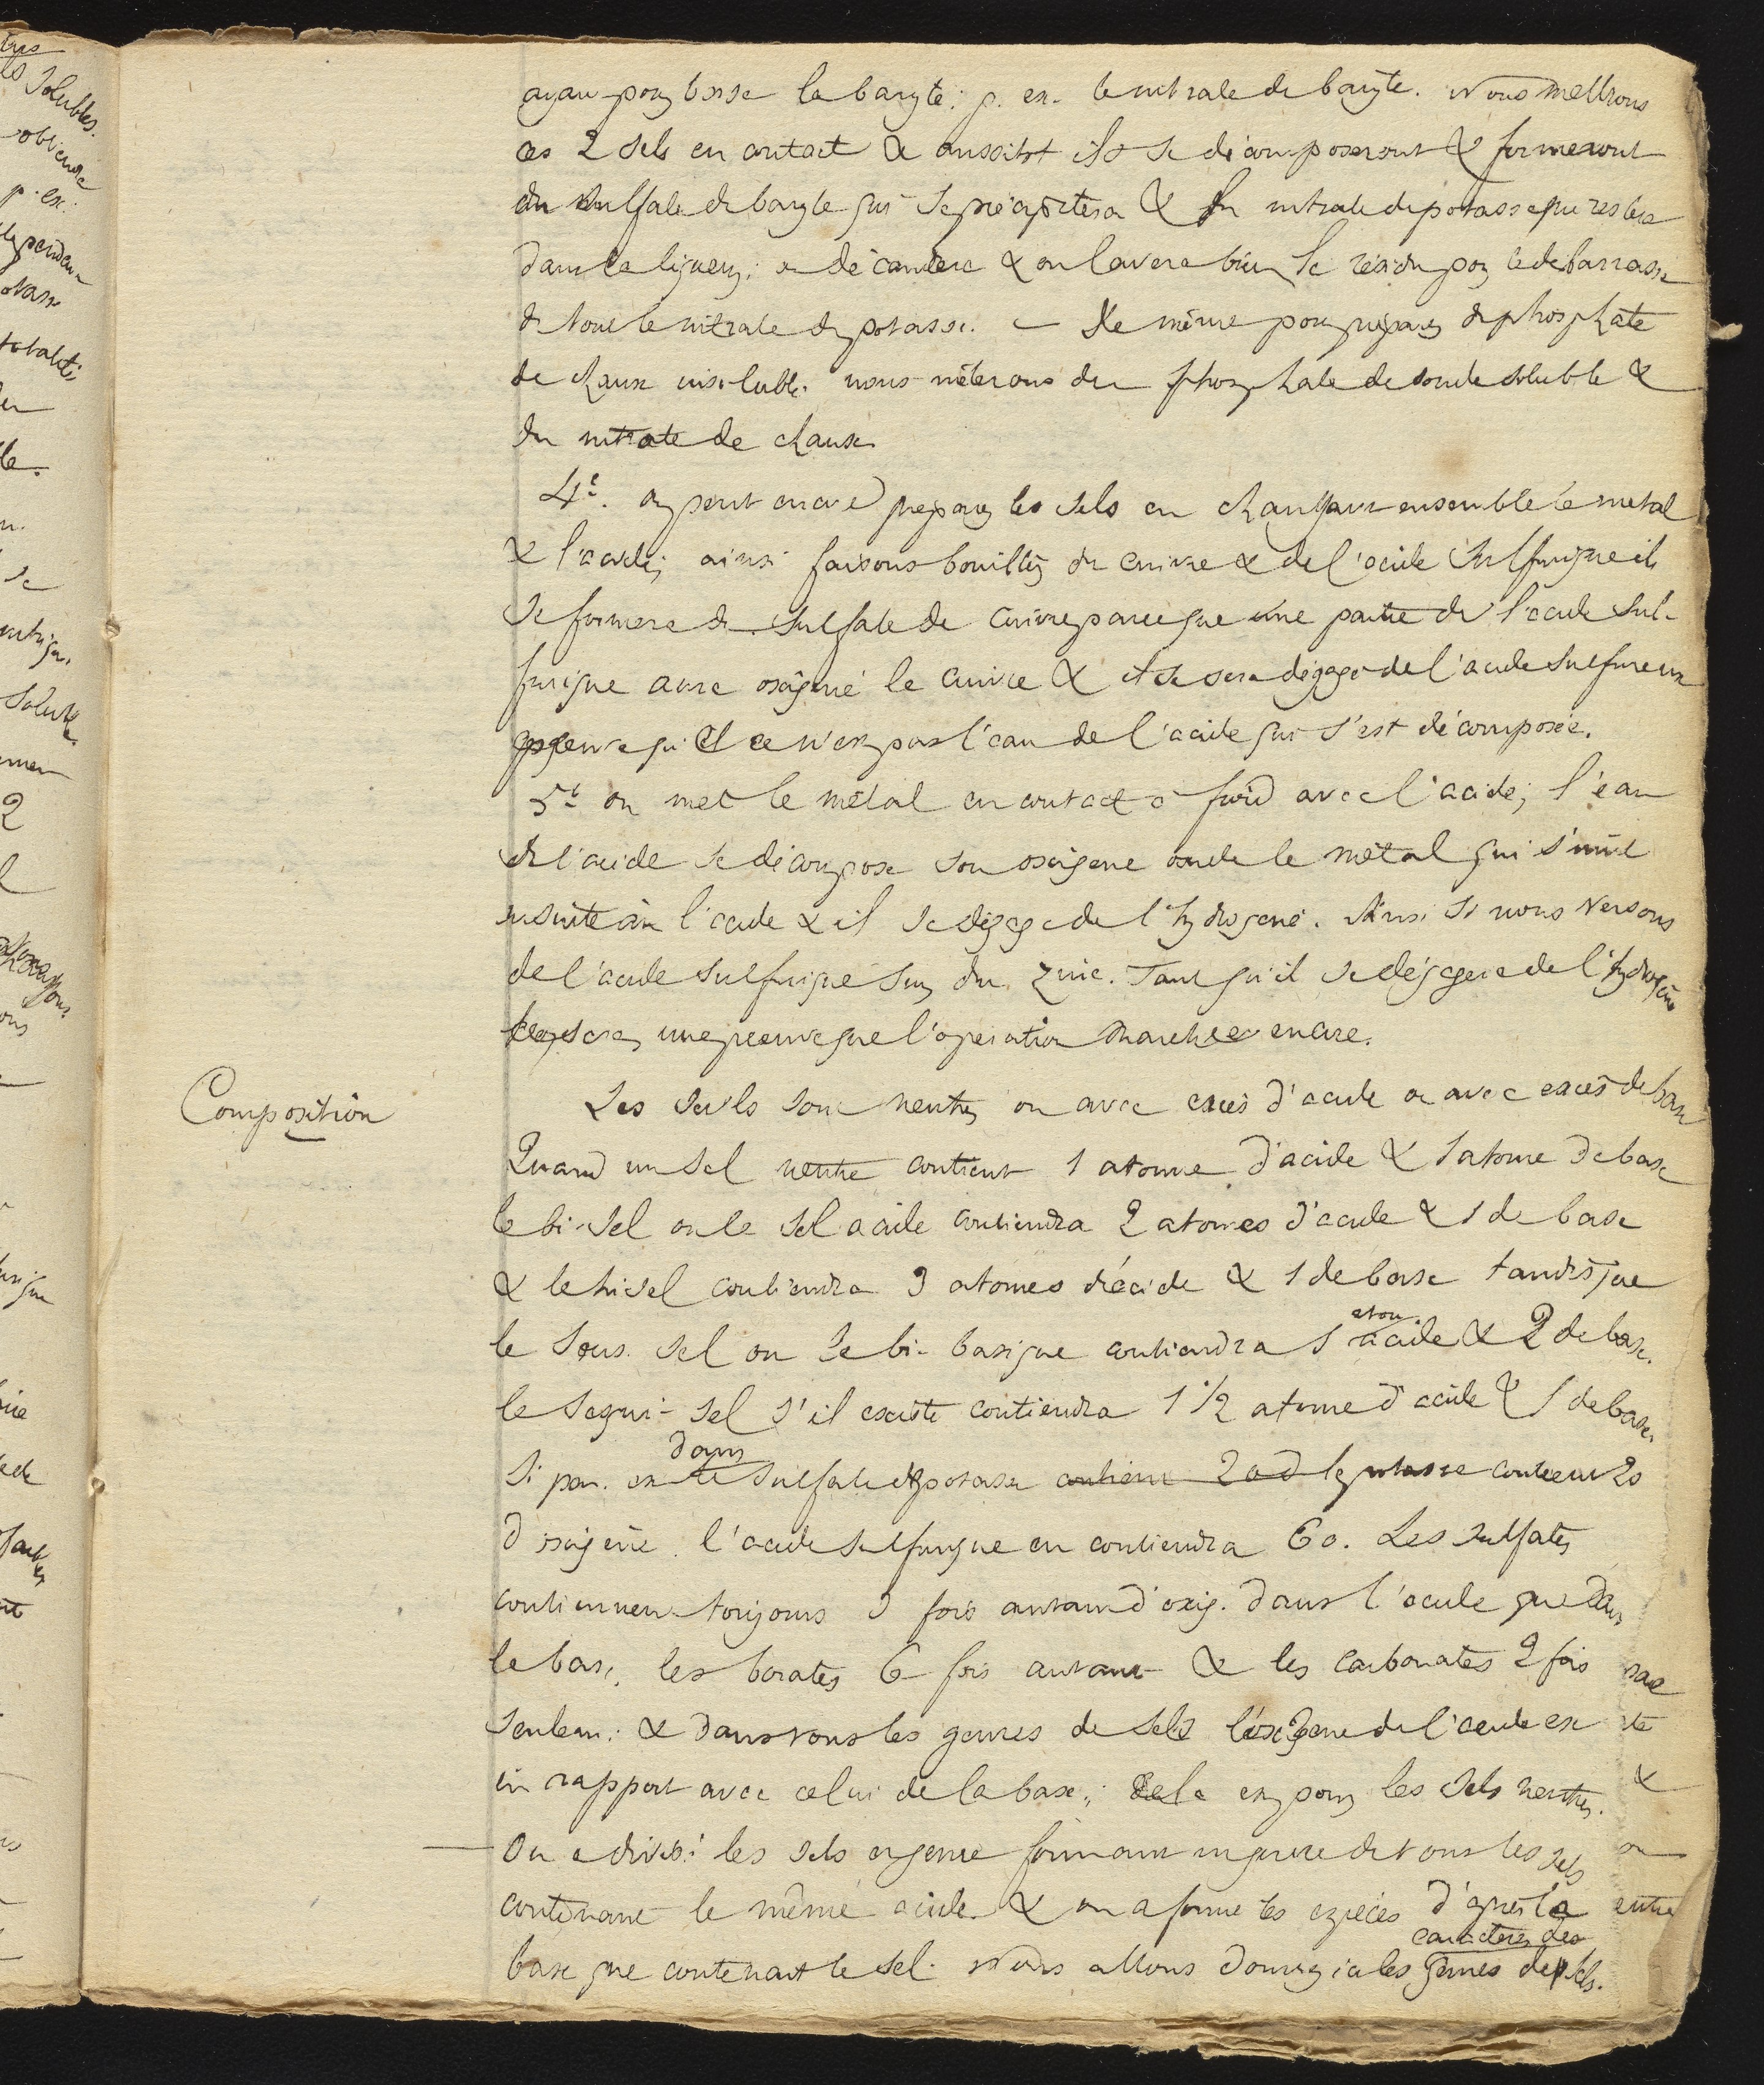 ayant pour base la baryte; p. ex. le nitrate de baryte. Nous mettrons
ces 2 sels en contact & aussitot ils se décomposeront & formeront
du sulfate de baryte qui se précipitera & du nitrate de potasse qui restera
dans la liqueur; on décantera & on lavera bien le résidu pour le debarrasser
de tout le nitrate de potasse. — De même pour préparer du phosphate
de chaux insoluble nous mèlerons du phosphate de soude soluble &
du nitrate de chaux
4°. on peut encore préparer les sels en chauffant ensemble le metal
& l'acide; ainsi faisons bouillir du cuivre & de l'acide sulfurique il
se formera du sulfate de cuivre parce que une partie de l'acide sul-
furique aura oxigené le cuivre & il se sera dégagé de l'acide sulfureux
preuve que ce n'est pas l'eau de l'acide qui s'est décomposée.
5° on met le métal en contact à froid avec l'acide; l'eau
de l'acide se décompose son oxigene oxide le métal qui s'unit
ensuite à l'acide & il se dégage de l'hydrogene. Ainsi si nous versons
de l'acide sulfurique sur du zinc. Tant qu'il se dégagera de l'hydrogène
ce sera une preuve que l'operation marche encore.
Composition
Les sels sont neutres ou avec excès d'acide ou avec excès de base
Quand un sel neutre contient 1 atome d'acide & 1 atome de base
le bi-sel ou le sel acide contiendra 2 atomes d'acide & 1 de base
& le trisel contiendra 3 atomes d'acide & 1 de base tandis que
le sous-sel ou le bi-basique contiendra 1 atom. acide & 2 de base.
le sesqui-sel s'il existe contiendra 1 1/2 atome d'acide & 1 de base.
Si par. ex dans le sulfate de potasse contient 2 o d la potasse contient 20
d'oxigène. l'acide sulfurique en contiendra 60. Les sulfates
contiennent toujours 3 fois autant d'oxig. dans l'acide que dans
la base, les borates 6 fois autant & les carbonates 2 fois
seulem: & dans tous les genres de sels l'oxigene de l'acide est
en rapport avec celui de la base; Cela est pour les sels neutres.
— On a divisé les sels en genre formant un genre de tous les sels
contenant le même acide & on a formé les espèces d'après la
base que contenait le sel. Nous allons donner ici les caracteres des genres de sels.